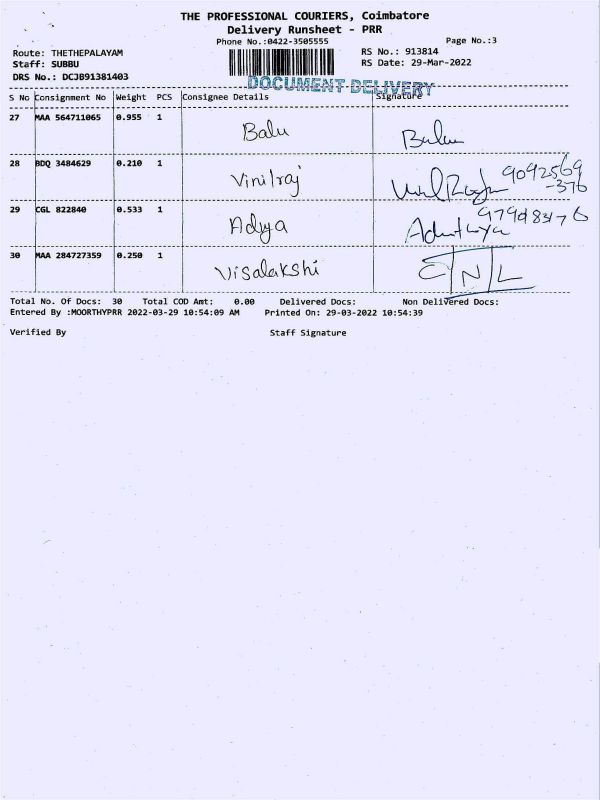 THE PROFESSIONAL COURIERS, Coimbatore
Delivery Runsheet - PRR
Phone No.:0422-3505555 Page No.:3
Route: THETHEPALAYAM RS No.: 913814
Staff: SUBBU RS Date: 29-Mar-2022
DRS No.: DCJB91381403
DOCUMENT DELIVERY
S No Consignment No Weight PCS Consignee Details Signature
27 MAA 564711065 0.955 1 Balu Balu
28 BDQ 3484629 0.210 1 Vinilraj 9092569
-376
29 CGL 822840 0.533 1 Adiya
30 MAA 284727359 0.250 1 Visalakshi CNL
Total No. Of Docs: 30 Total COD Amt: 0.00 Delivered Docs: Non Delivered Docs:
Entered By :MOORTHYPRR 2022-03-29 10:54:09 AM Printed On: 29-03-2022 10:54:39
Verified By Staff Signature